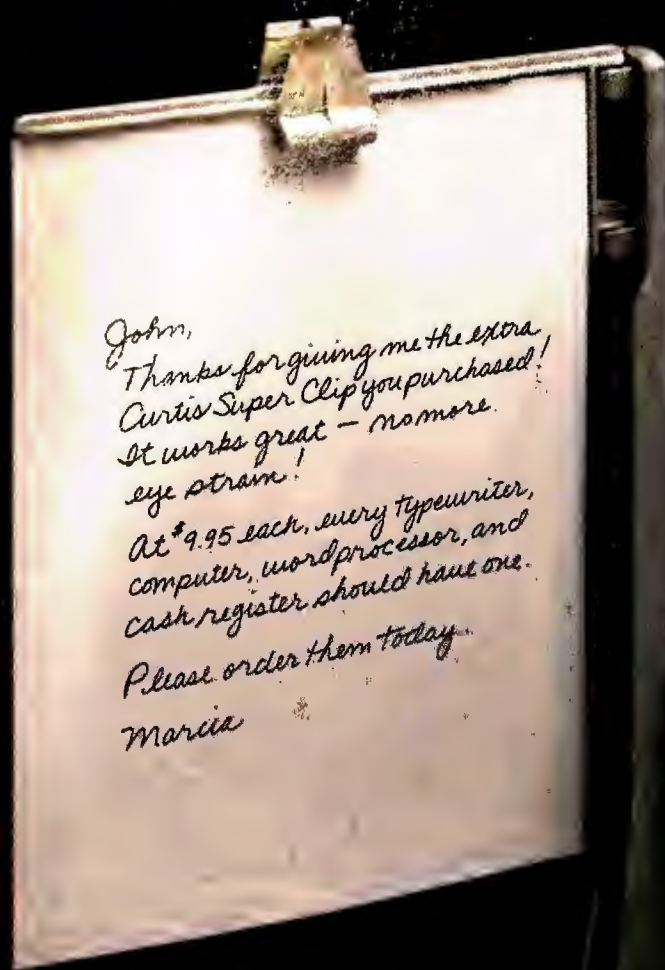 John,
Thanks for giving me the extra
Curtis Super Clip you purchased!
It works great — no more
eye strain!
At $9.95 each, every typewriter,
computer, word processor, and
cash register should have one.
Please order them today.
Marcia